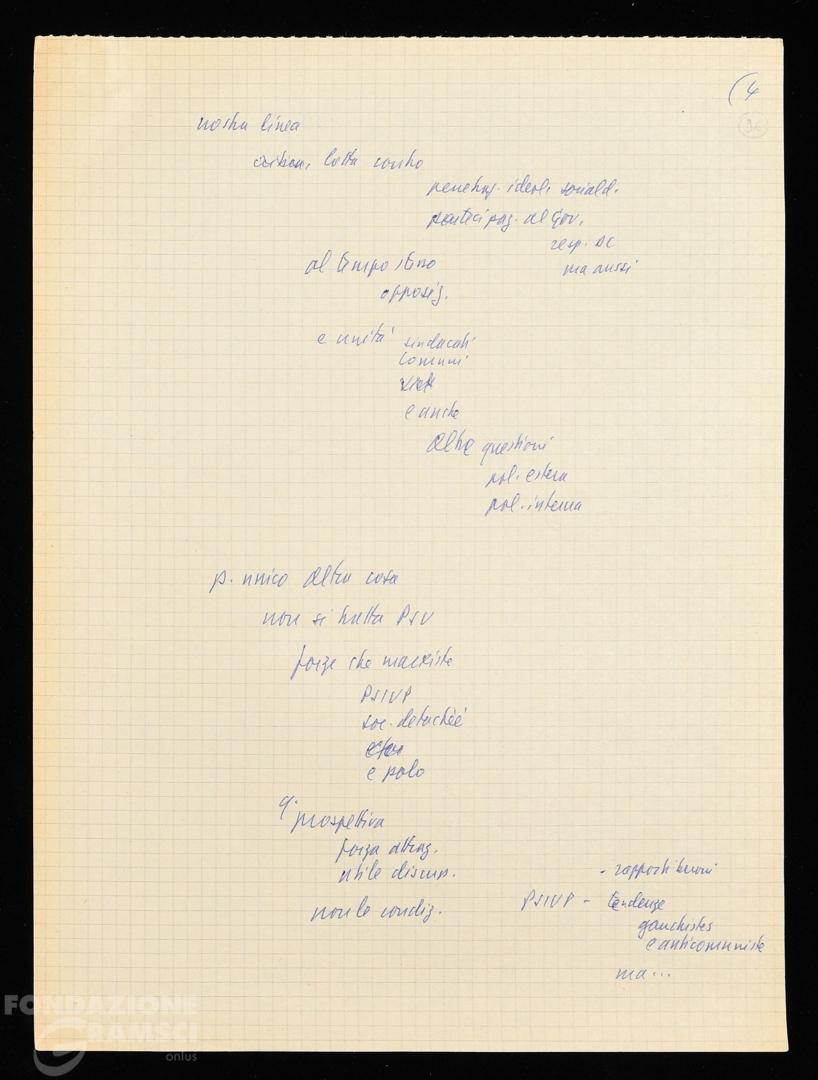 (4
36
nostra linea
lotta contro
penetraz. ideol. sociald.
partecipaz. al gov.
resp. DC
ma aussi
al tempo stesso
opposiz.
e unità sindacati
comuni
e anche
altre questioni
pol. estera
pol. interna
p. unico altra cosa
non si tratta PSU
forze che marxiste
PSIUP
soc. detachéé
e polo
q. prospettiva
forza attraz.
utile discuss.
non le condiz.
- rapporti buoni
PSIUP - tendenze
gauchistes
e anticomuniste
ma...
FONDAZIONE
GRAMSCI
onlus